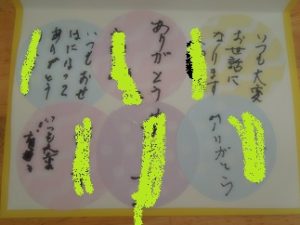 いつも大変
お世話に
なります
ありがとう
いつもおせ
わになって
ありがとう
ありがとう
いつも大変